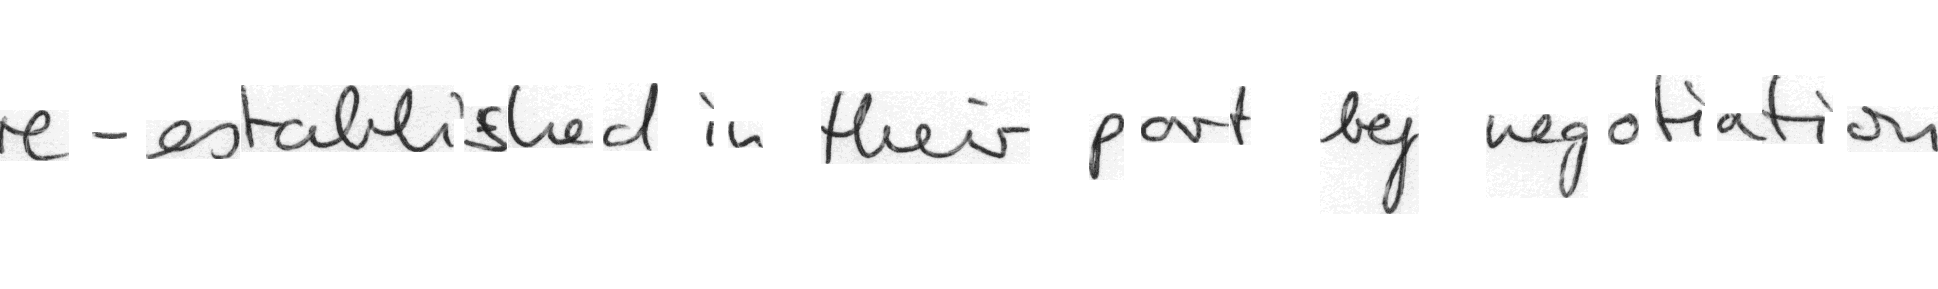 re-established in their part by negotiation